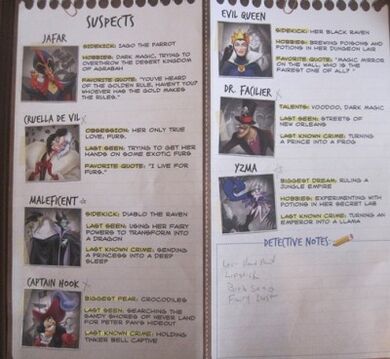 SUSPECTS
JAFAR
SIDEKICK: IAGO THE PARROT
HOBBIES: DARK MAGIC, TRYING TO
OVERTHROW THE DESERT KINGDOM
OF AGRABAH
FAVORITE QUOTE: "YOU'VE HEARD
OF THE GOLDEN RULE, HAVEN'T YOU?
WHOEVER HAS THE GOLD MAKES
THE RULES."
CRUELLA DE VIL
OBSESSION: HER ONLY TRUE
LOVE, FURS.
LAST SEEN: TRYING TO GET HER
HANDS ON SOME EXOTIC FURS
FAVORITE QUOTE: "I LIVE FOR
FURS."
MALEFICENT
SIDEKICK: DIABLO THE RAVEN
LAST SEEN: USING HER FAIRY
POWERS TO TRANSFORM INTO
A DRAGON
LAST KNOWN CRIME: SENDING
A PRINCESS INTO A DEEP
SLEEP
CAPTAIN HOOK
BIGGEST FEAR: CROCODILES
LAST SEEN: SEARCHING THE
SANDY SHORES OF NEVER LAND
FOR PETER PAN'S HIDEOUT
LAST KNOWN CRIME: HOLDING
TINKER BELL CAPTIVE
EVIL QUEEN
SIDEKICK: HER BLACK RAVEN
HOBBIES: BREWING POISONS AND
POTIONS IN HER DUNGEON LAIR
FAVORITE QUOTE: "MAGIC MIRROR
ON THE WALL, WHO IS THE
FAIREST ONE OF ALL?"
DR. FACILIER
TALENTS: VOODOO, DARK MAGIC
LAST SEEN: STREETS OF
NEW ORLEANS
LAST KNOWN CRIME: TURNING
A PRINCE INTO A FROG
YZMA
BIGGEST DREAM: RULING A
JUNGLE EMPIRE
HOBBIES: EXPERIMENTING WITH
POTIONS IN HER SECRET LAB
LAST KNOWN CRIME: TURNING
AN EMPEROR INTO A LLAMA
DETECTIVE NOTES:
Lipstick
Bird Seed
Fairy Dust